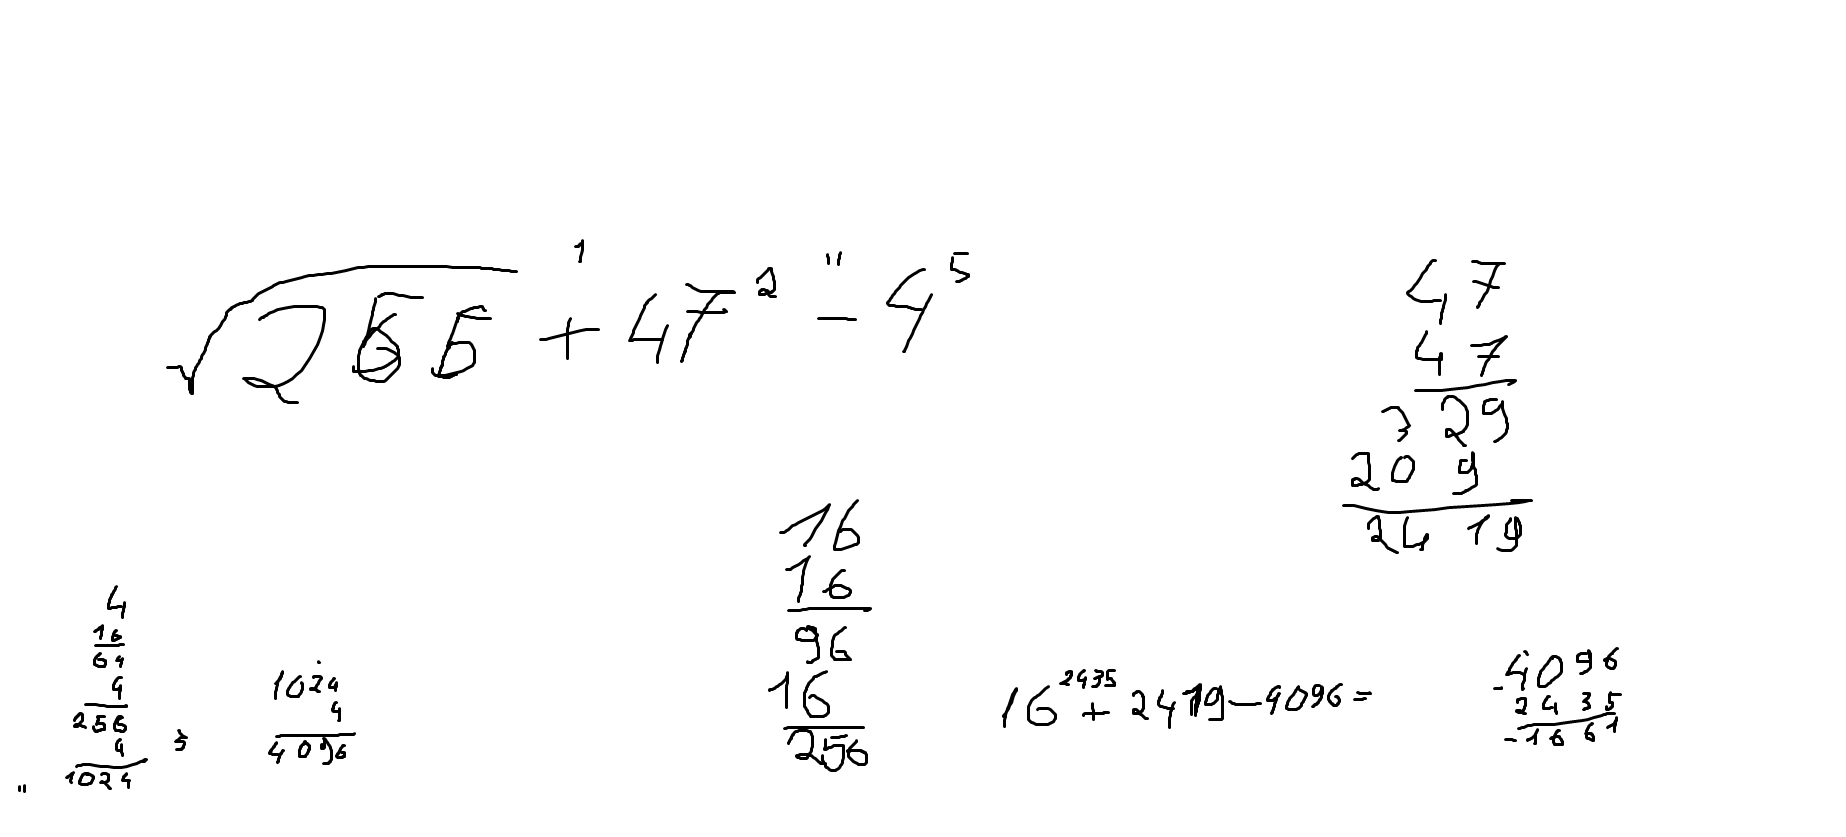 √256 + 47² - 4⁵
1
"
47
47
329
209
2419
16
16
96
16
256
4
16
64
4
256
4
1024
"
1024
4
4096
2435
16 + 2419 - 4096 =
-4096
2435
-1661